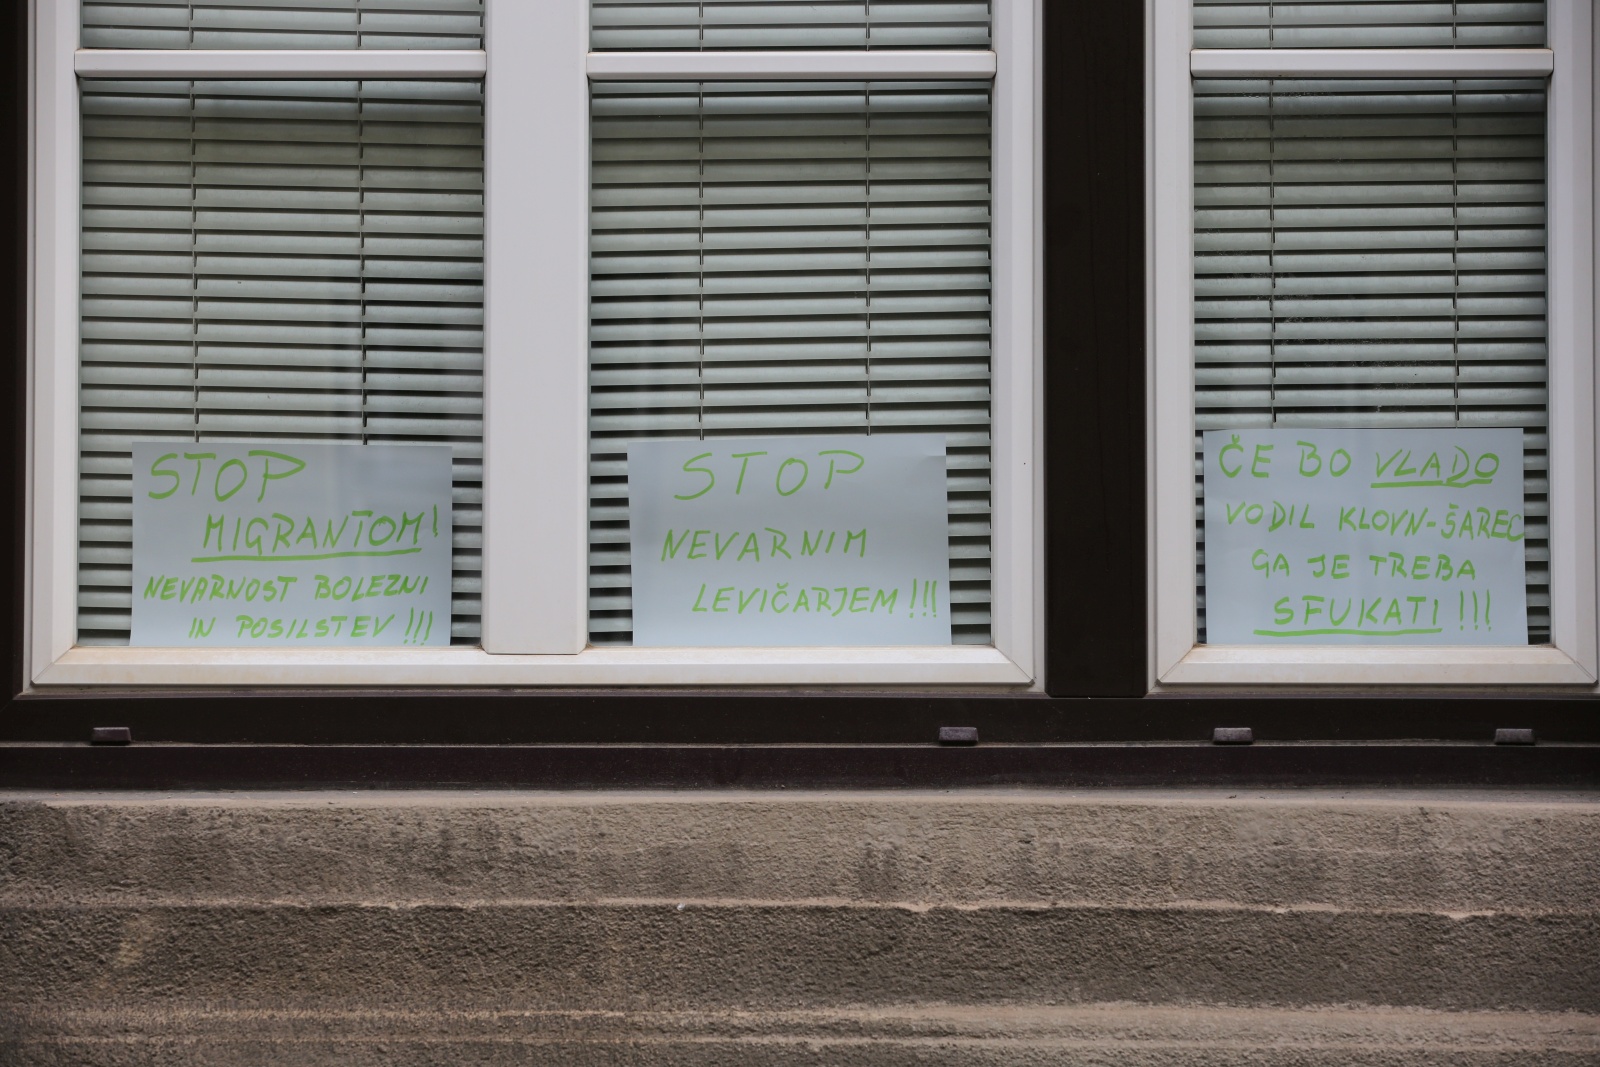 STOP
MIGRANTOM!
NEVARNOST BOLEZNI
IN POSILSTEV!!!
STOP
NEVARNIM
LEVIČARJEM!!!
ČE BO VLADO
VODIL KLOVN-ŠAREC
GA JE TREBA
SFUKATI!!!